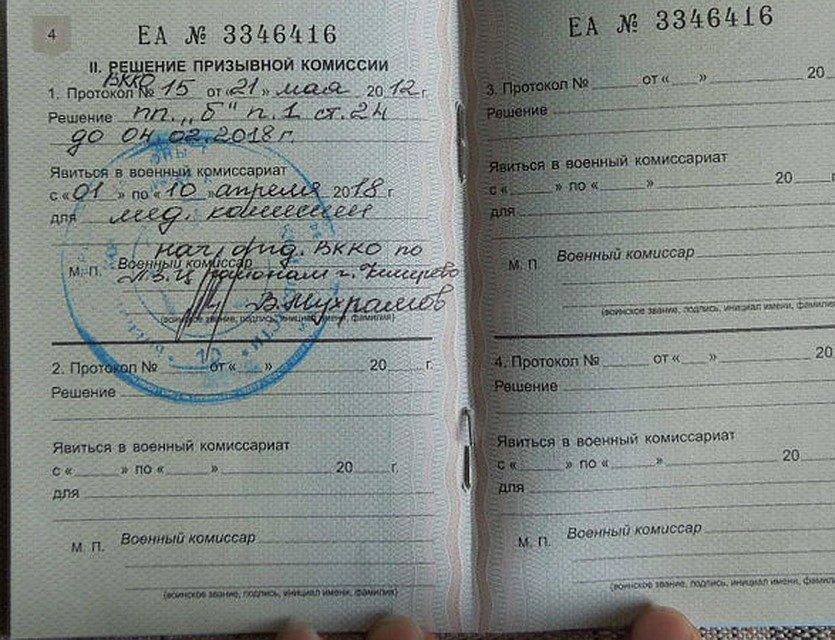 4
ЕА № 3346416
II. РЕШЕНИЕ ПРИЗЫВНОЙ КОМИССИИ
ВККО
1. Протокол № 15 от «21» мая 2012 г.
Решение пп. „б" п. 1 ст. 24
до 04.02.2018 г.
Явиться в военный комиссариат
с «01» по «10» апреля 2018 г.
для мед. комиссии
нач. отд. ВККО по
М. П. Военный комиссар
районам г. Кемерово
В. Мухрамов
(воинское звание, подпись, инициал имени, фамилия)
2. Протокол № от « » 20 г.
Решение
Явиться в военный комиссариат
с « » по « » 20 г.
для
М. П. Военный комиссар
(воинское звание, подпись, инициал имени, фамилия)
ЕА № 3346416
3. Протокол № от « » 20
Решение
Явиться в военный комиссариат
с « » по « » 20
для
М. П. Военный комиссар
(воинское звание, подпись, инициал имени, фамилия
4. Протокол № от « » 20
Решение
Явиться в военный комиссариат
с « » по « » 20
для
М. П. Военный комиссар
(воинское звание, подпись, инициал имени, фамилия